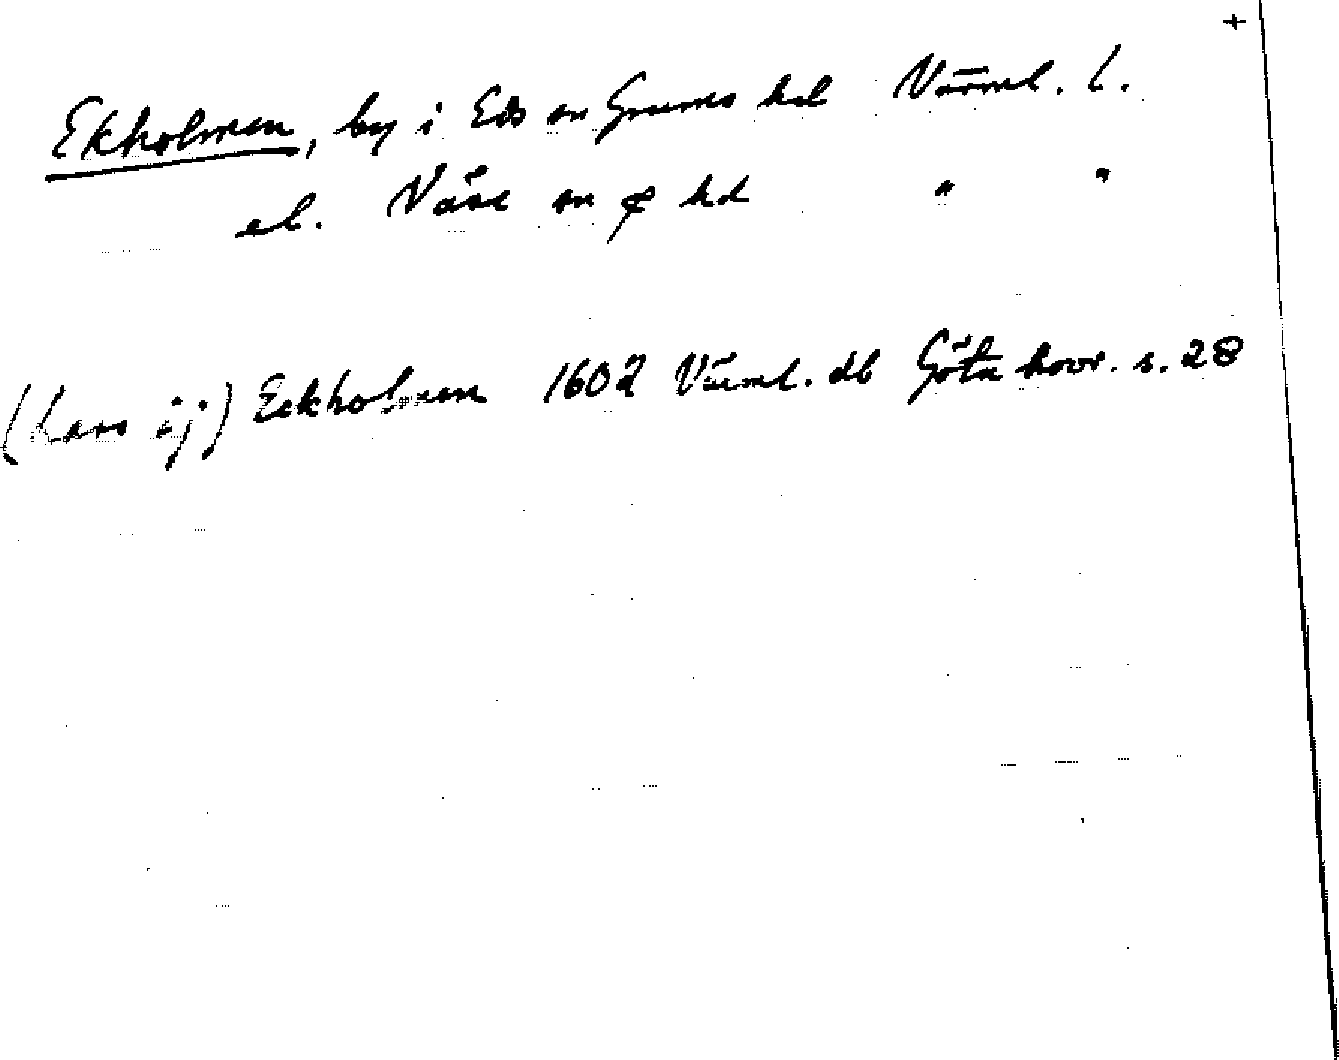 +
Ekholmen, by i Eds sn Grums hd Värml. l.
el. Väse sn & hd " "
(Lars ij) Eckholmen 1602 Värml. db Göta hovr. s. 28